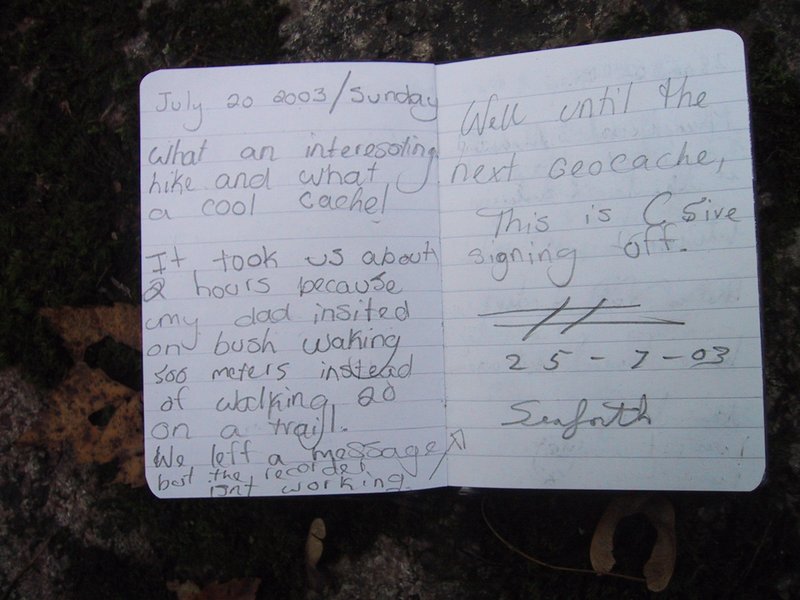 July 20 2003/Sunday
What an interessting
hike and what
a cool cache!
It took us about
2 hours because
my dad insited
on bush waking
500 meters instead
of walking 20
on a trayl.
We left a message
but the recorder
isnt working.
Well until the
next Geocache,
This is C 5ive
signing off.
25-7-03
Seaforth